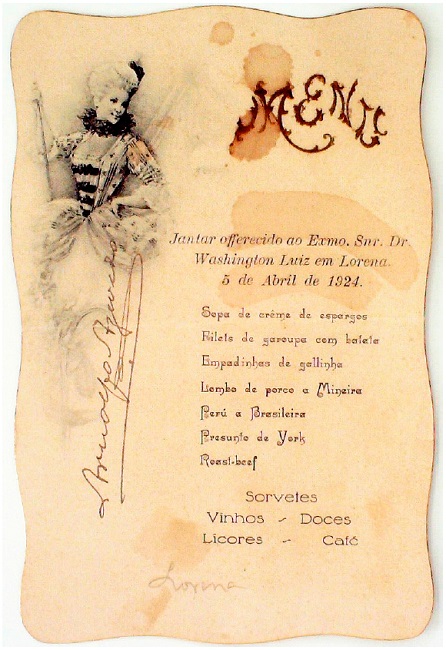 MENU
Jantar offerecido ao Exmo. Snr. Dr.
Washington Luiz em Lorena.
5 de Abril de 1924.
Sopa de créme de espargos
Filets de garoupa com batata
Empadinhas de gallinha
Lombo de porco a Mineira
Perú a Brasileira
Presunto de York
Roast-beef
Sorvetes
Vinhos - Doces
Licores - Café
Arnolfo Azevedo
Lorena